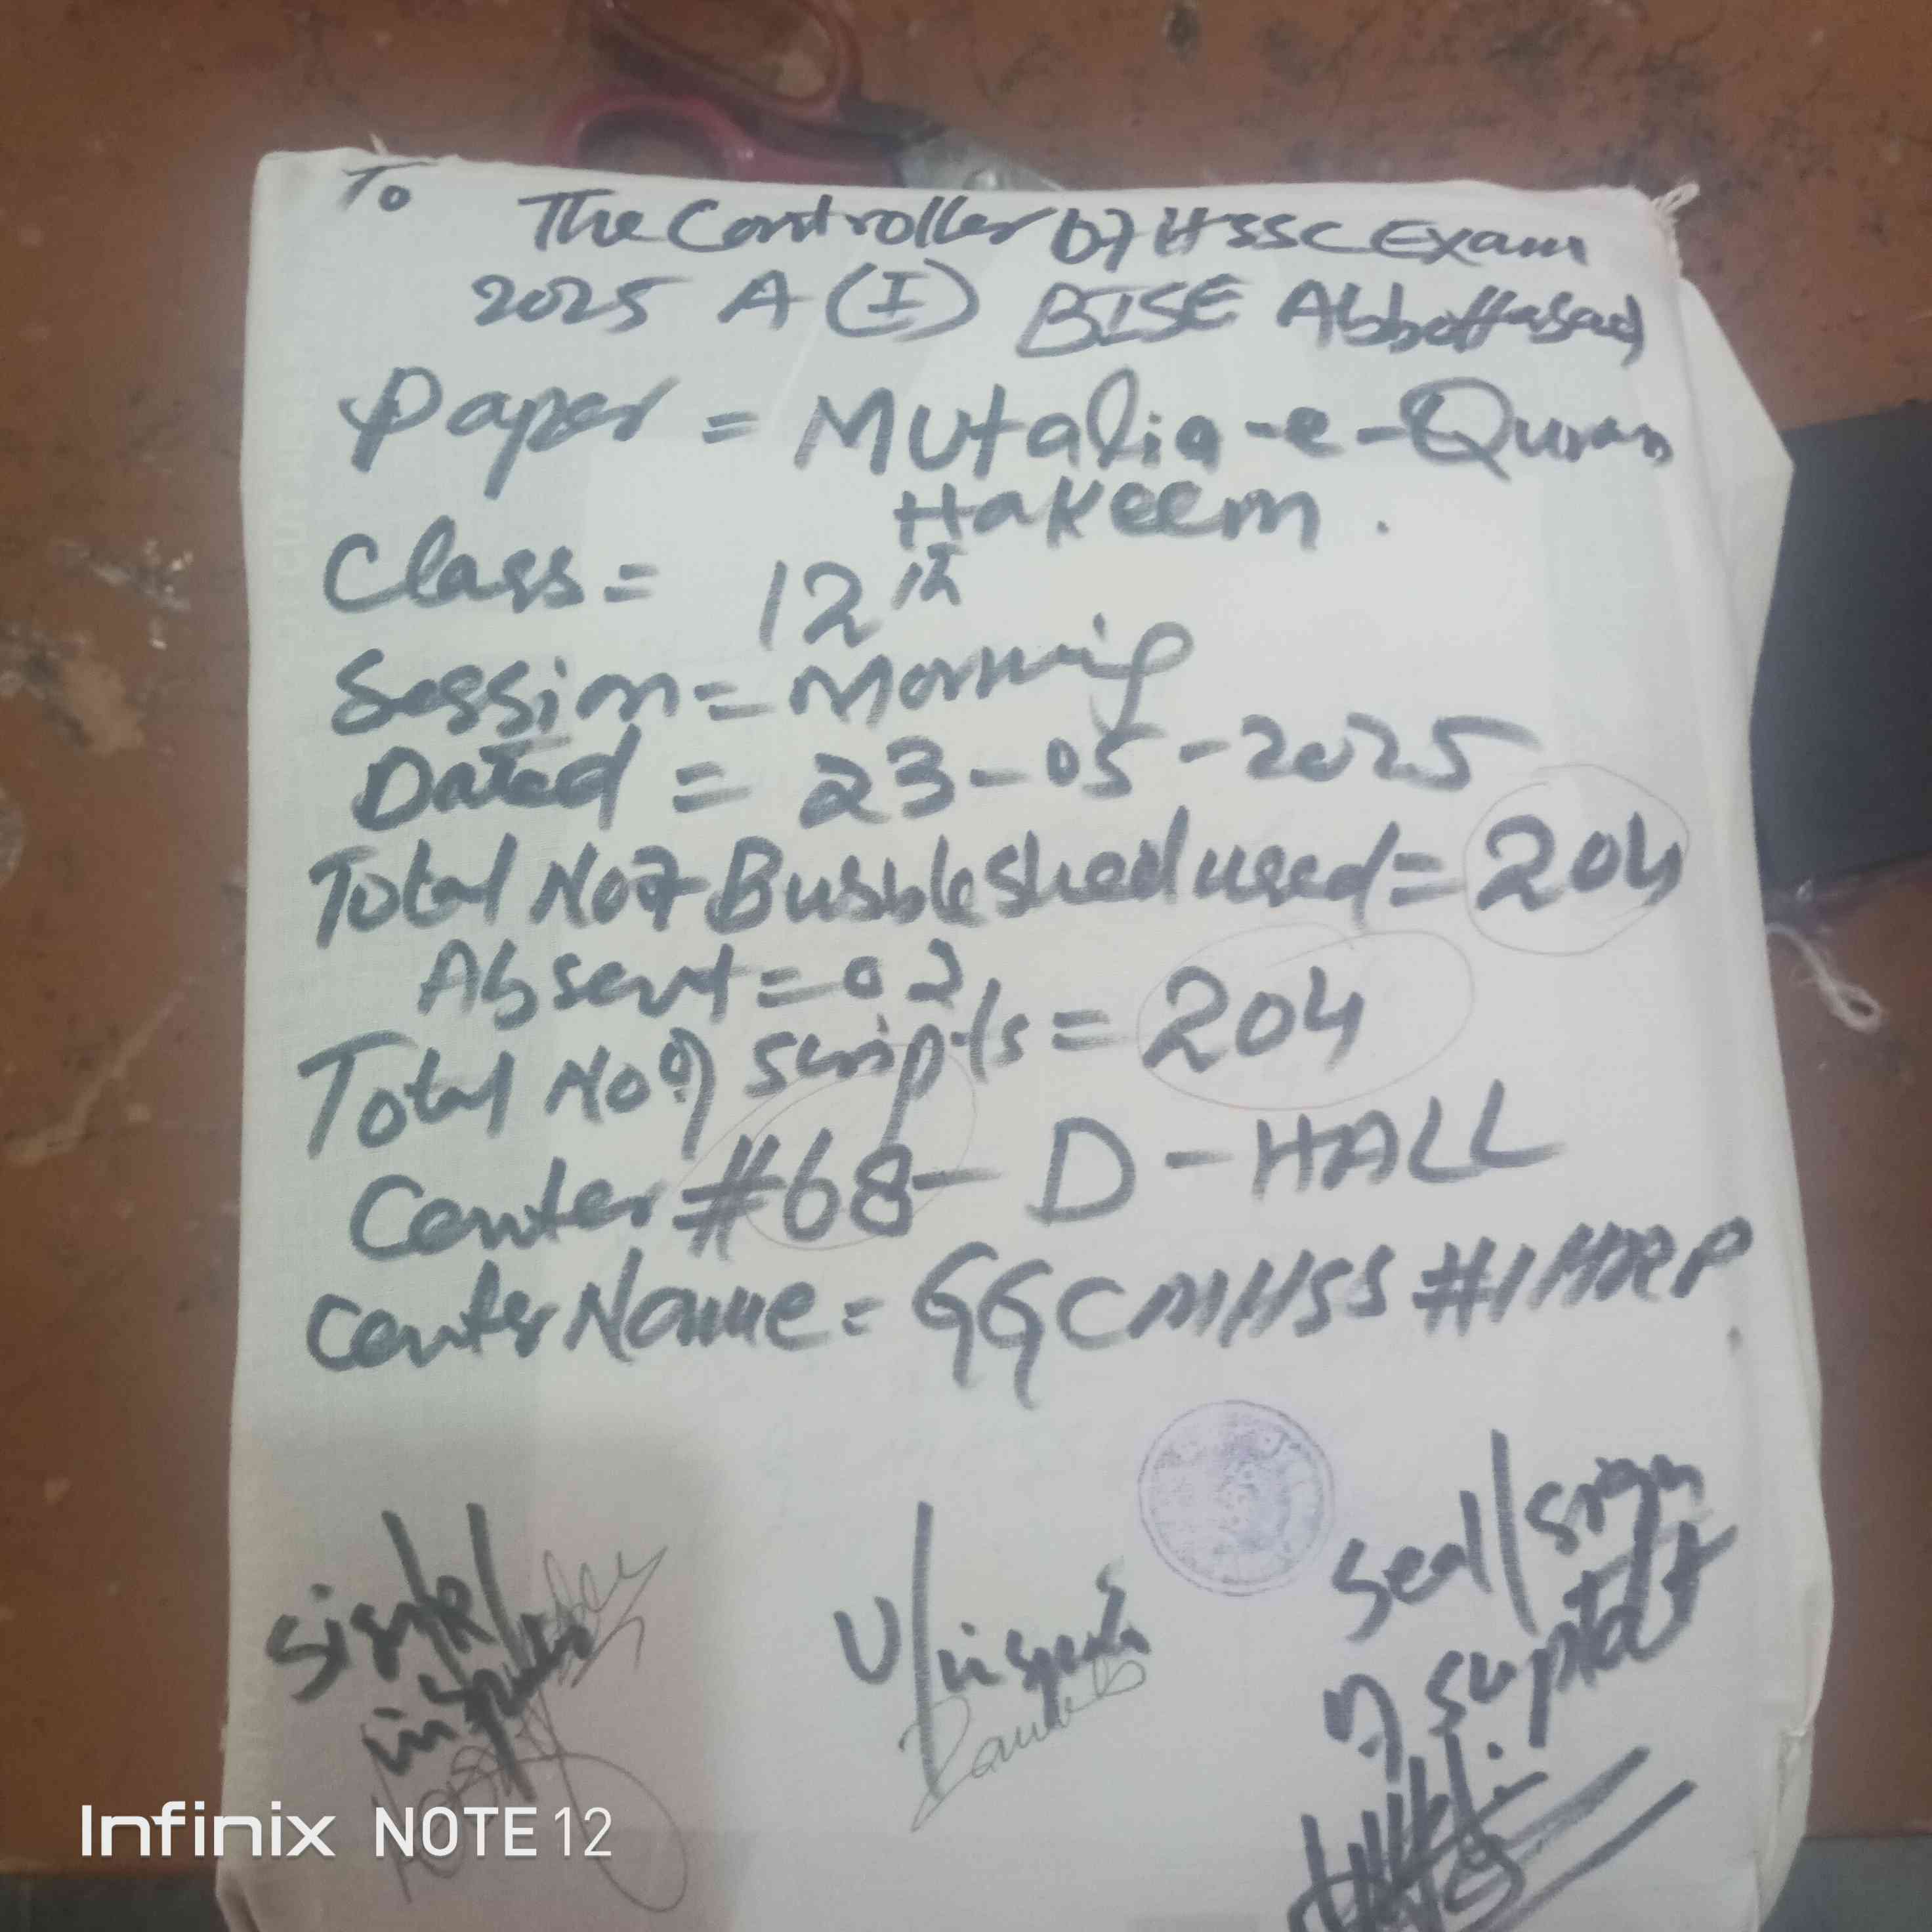 To
The Controller of HSSC Exam
2025 A (I) BISE Abbottabad
Paper = Mutalia-e-Quran
Hakeem.
Class = 12th
Session = Morning
Dated = 23-05-2025
Total No of Bubble sheed used = 204
Absent = 02
Total No of scripts = 204
Center #68 - D - HALL
Center Name = GGCMHSS #1 HRP
Seal/sign
of Suptdt
Infinix NOTE 12